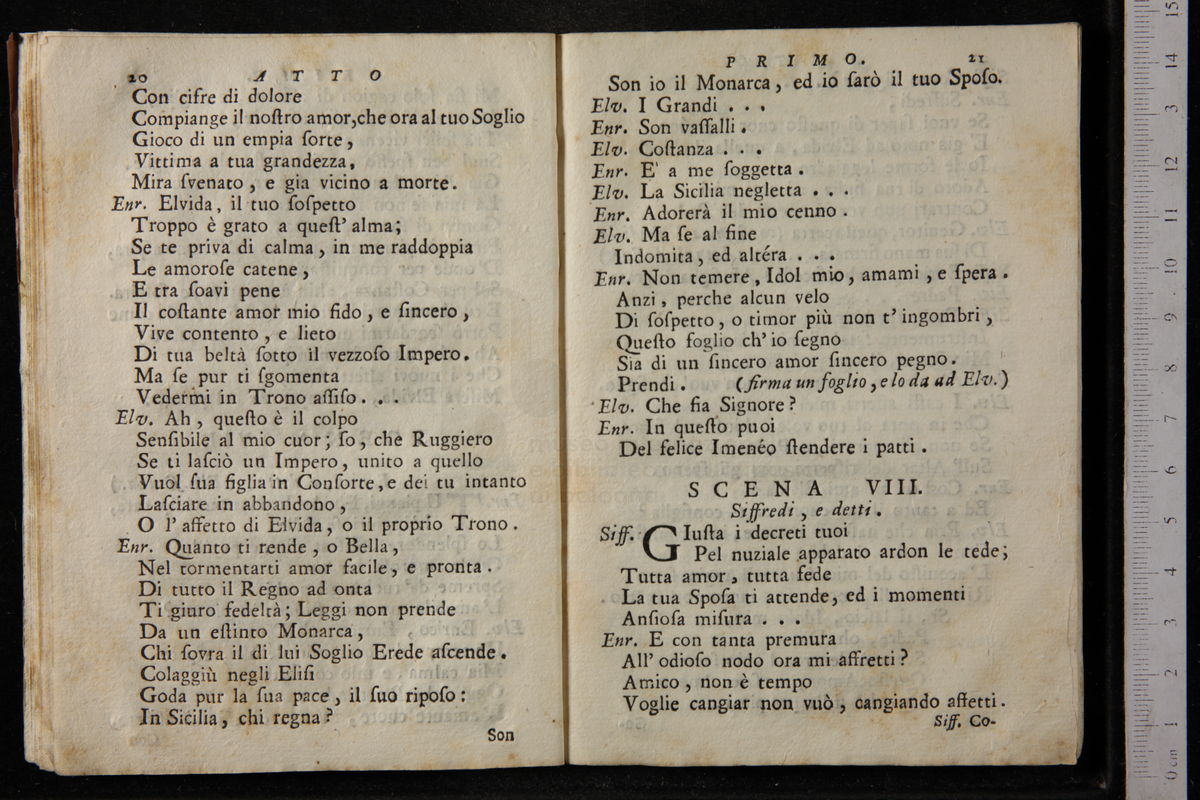 20 ATTO
Con cifre di dolore
Compiange il noſtro amor,che ora al tuo Soglio
Gioco di un empia ſorte,
Vittima a tua grandezza,
Mira ſvenato, e gia vicino a morte.
Enr. Elvida, il tuo ſoſpetto
Troppo è grato a queſt' alma;
Se te priva di calma, in me raddoppia
Le amoroſe catene,
E tra ſoavi pene
Il coſtante amor mio fido, e ſincero,
Vive contento, e lieto
Di tua beltà ſotto il vezzoſo Impero.
Ma ſe pur ti ſgomenta
Vedermi in Trono aſſiſo. . .
Elv. Ah, queſto è il colpo
Senſibile al mio cuor; ſo, che Ruggiero
Se ti laſciò un Impero, unito a quello
Vuol ſua figlia in Conſorte, e dei tu intanto
Laſciare in abbandono,
O l' affetto di Elvida, o il proprio Trono.
Enr. Quanto ti rende, o Bella,
Nel tormentarti amor facile, e pronta.
Di tutto il Regno ad onta
Ti giuro fedeltà; Leggi non prende
Da un eſtinto Monarca,
Chi ſovra il di lui Soglio Erede aſcende.
Colaggiù negli Eliſi
Goda pur la ſua pace, il ſuo ripoſo:
In Sicilia, chi regna?
Son
PRIMO. 21
Son io il Monarca, ed io ſarò il tuo Spoſo.
Elv. I Grandi . . .
Enr. Son vaſſalli.
Elv. Coſtanza . . .
Enr. E' a me ſoggetta.
Elv. La Sicilia negletta . . .
Enr. Adorerà il mio cenno.
Elv. Ma ſe al fine
Indomita, ed altéra . . .
Enr. Non temere, Idol mio, amami, e ſpera.
Anzi, perche alcun velo
Di ſoſpetto, o timor più non t' ingombri,
Queſto foglio ch' io ſegno
Sia di un ſincero amor ſincero pegno.
Prendi. (firma un foglio, e lo da ad Elv.)
Elv. Che fia Signore?
Enr. In queſto puoi
Del felice Imenéo ſtendere i patti.
SCENA VIII.
Siffredi, e detti.
Siff. GIuſta i decreti tuoi
Pel nuziale apparato ardon le tede;
Tutta amor, tutta fede
La tua Spoſa ti attende, ed i momenti
Anſioſa miſura . . .
Enr. E con tanta premura
All' odioſo nodo ora mi affretti?
Amico, non è tempo
Voglie cangiar non vuò, cangiando affetti.
Siff. Co-
0 cm 1 2 3 4 5 6 7 8 9 10 11 12 13 14 15